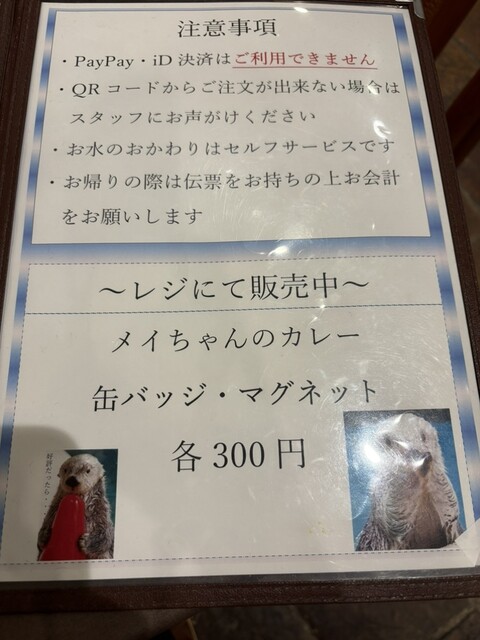 注意事項
・PayPay・iD決済はご利用できません
・QRコードからご注文が出来ない場合は
スタッフにお声がけください
・お水のおかわりはセルフサービスです
・お帰りの際は伝票をお持ちの上お会計
をお願いします
～レジにて販売中～
メイちゃんのカレー
缶バッジ・マグネット
各300円
好評だったら